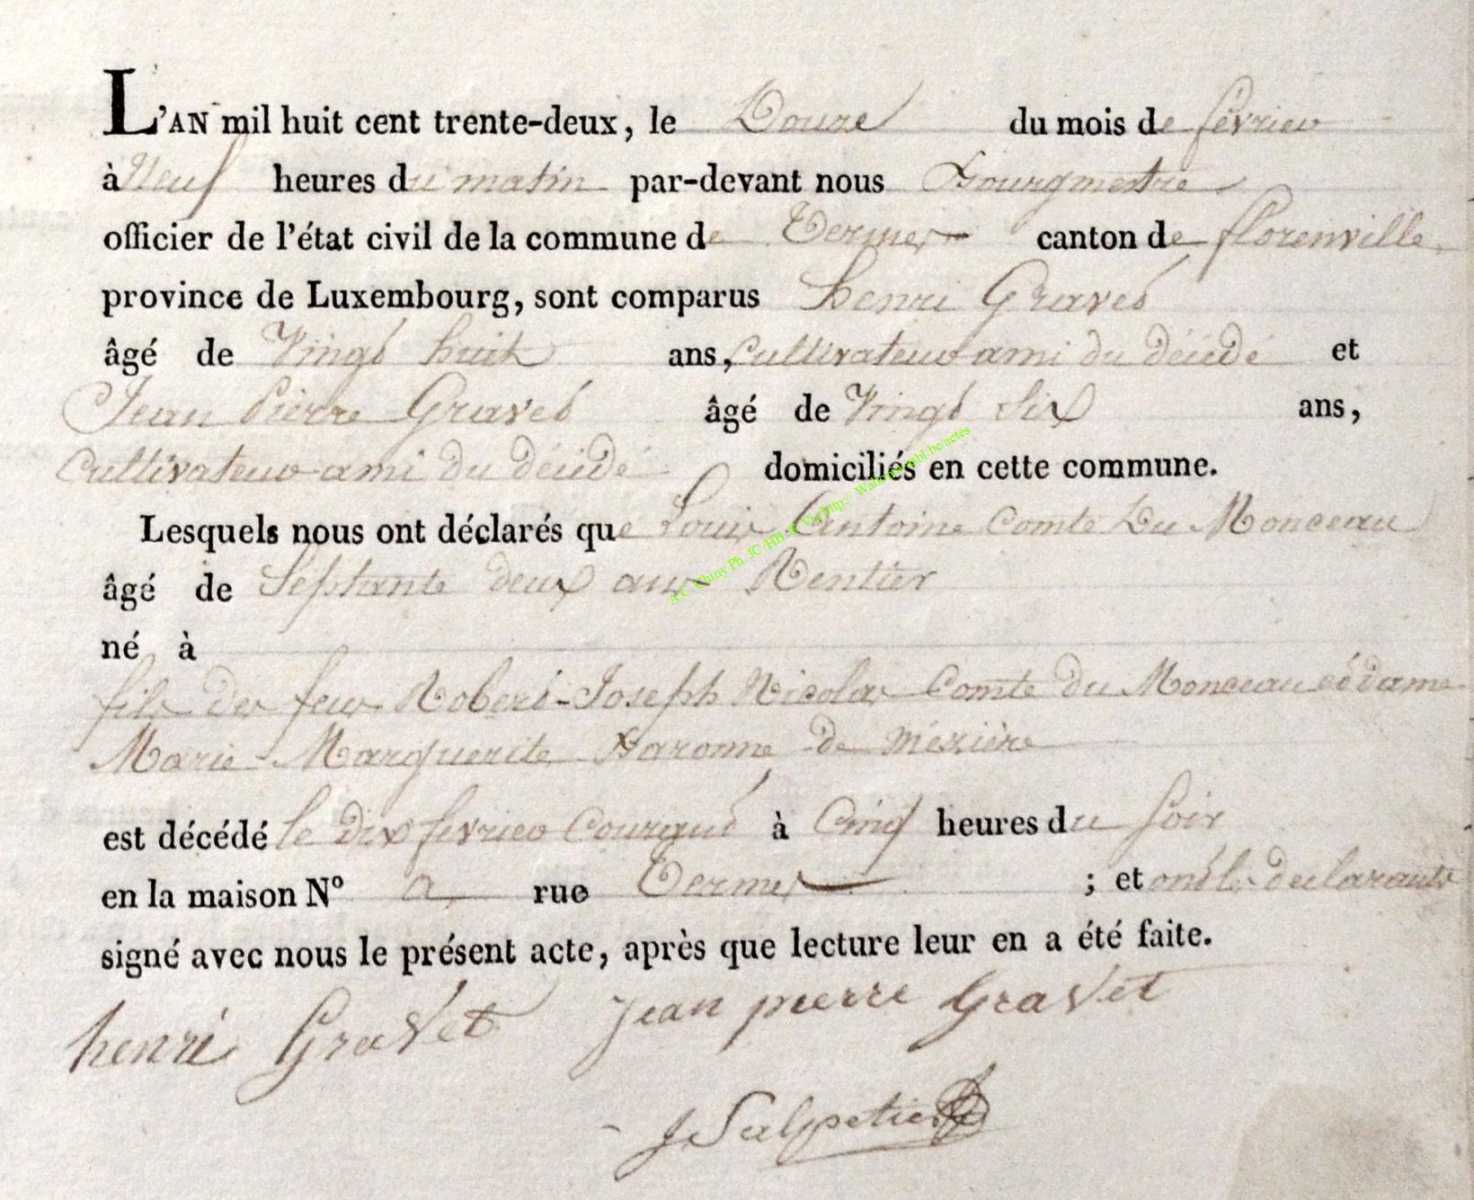 L'AN mil huit cent trente-deux, le Douze du mois de fevrier
à Neuf heures du matin par-devant nous Bourgmestre
officier de l'état civil de la commune de Termes canton de florenville
province de Luxembourg, sont comparus henri Gravet
âgé de Vingt huit ans, Cultivateur ami du décédé et
Jean Pierre Gravet âgé de Vingt Six ans,
Cultivateur ami du décédé domiciliés en cette commune.
Lesquels nous ont déclarés que Louis Antoine Comte Du Monceau
âgé de Séptante deux ans Rentier
né à
fils de feu Robert-Joseph Nicolas Comte Du Monceau et dame
Marie Marguerite Baronne de mézière
est décédé le dix fevrier Courant à Cinq heures du Soir
en la maison N° a rue Termes ; et ont les declarants
signé avec nous le présent acte, après que lecture leur en a été faite.
henri Gravet Jean pierre Gravet
J Salpetier